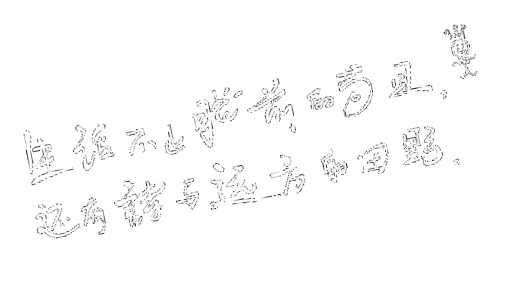 生活不止眼前的苟且，
还有诗与远方的田野．